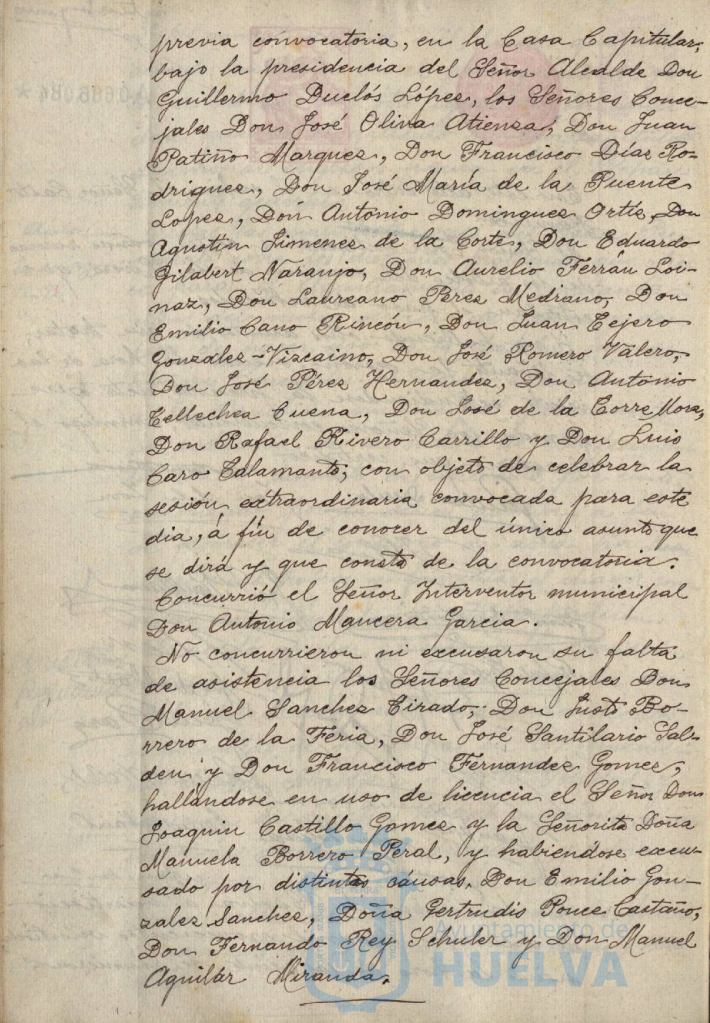 previa convocatoria, en la Casa Capitular,
bajo la presidencia del Señor Alcalde Don
Guillermo Duclós López, los Señores Conce-
jales Don José Oliva Atienza, Don Juan
Patiño Marquez, Don Francisco Díaz Ro-
driguez, Don José María de la Puente
Lopez, Don Antonio Dominguez Ortíz, Don
Agustín Jimenez de la Corte, Don Eduardo
Gilabert Naranjo, Don Aurelio Ferrán Loi-
naz, Don Laureano Perez Medrano, Don
Emilio Cano Rincón, Don Juan Tejero
Gonzalez-Vizcaino, Don José Romero Valero,
Don José Pérez Hernandez, Don Antonio
Tellechea Cuena, Don José de la Torre Mora,
Don Rafael Rivero Carrillo y Don Luis
Caro Talamanto; con objeto de celebrar la
sesión extraordinaria convocada para este
dia, á fin de conocer del único asunto que
se dirá y que consta de la convocatoria.
Concurrió el Señor Interventor municipal
Don Antonio Mancera Garcia.
No concurrieron ni excusaron su falta
de asistencia los Señores Concejales Don
Manuel Sanchez Tirado, Don Justo Bo-
rrero de la Feria, Don José Santilario Sal-
den y Don Francisco Fernandez Gomez,
hallándose en uso de licencia el Señor Don
Joaquin Castillo Gomez y la Señorita Doña
Manuela Borrero Peral, y habiendose excu-
sado por distintas cáusas, Don Emilio Gon-
zalez Sanchez, Doña Gertrudis Ponce Castaño,
Don Fernando Rey Schuler y Don Manuel
Aguilár Miranda.
Ayuntamiento de
HUELVA